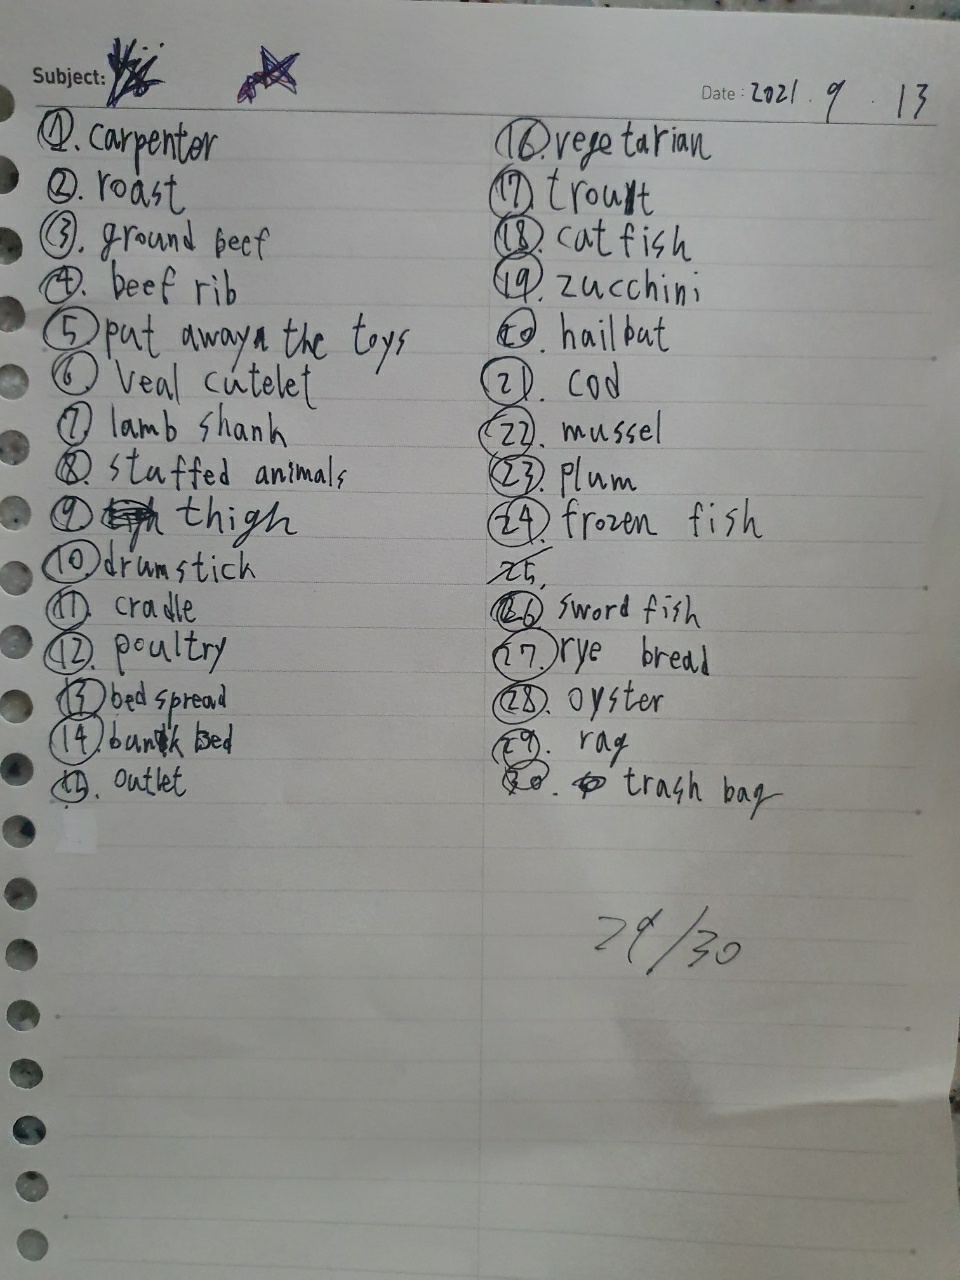 Subject:
Date : 2021 . 9 . 13
1. carpentor
2. roast
3. ground beef
4. beef rib
5 put away the toys
6. veal cutelet
7. lamb shank
8. stuffed animals
9. thigh
10. drumstick
11. cradle
12. poultry
13 bed spread
14. bunk bed
15. outlet
16. vegetarian
17. trout
18. cat fish
19. zucchini
20. hailbut
21. cod
22. mussel
23. plum
24. frozen fish
25.
26 sword fish
27. rye bread
28. oyster
29. rag
30. trash bag
29/30